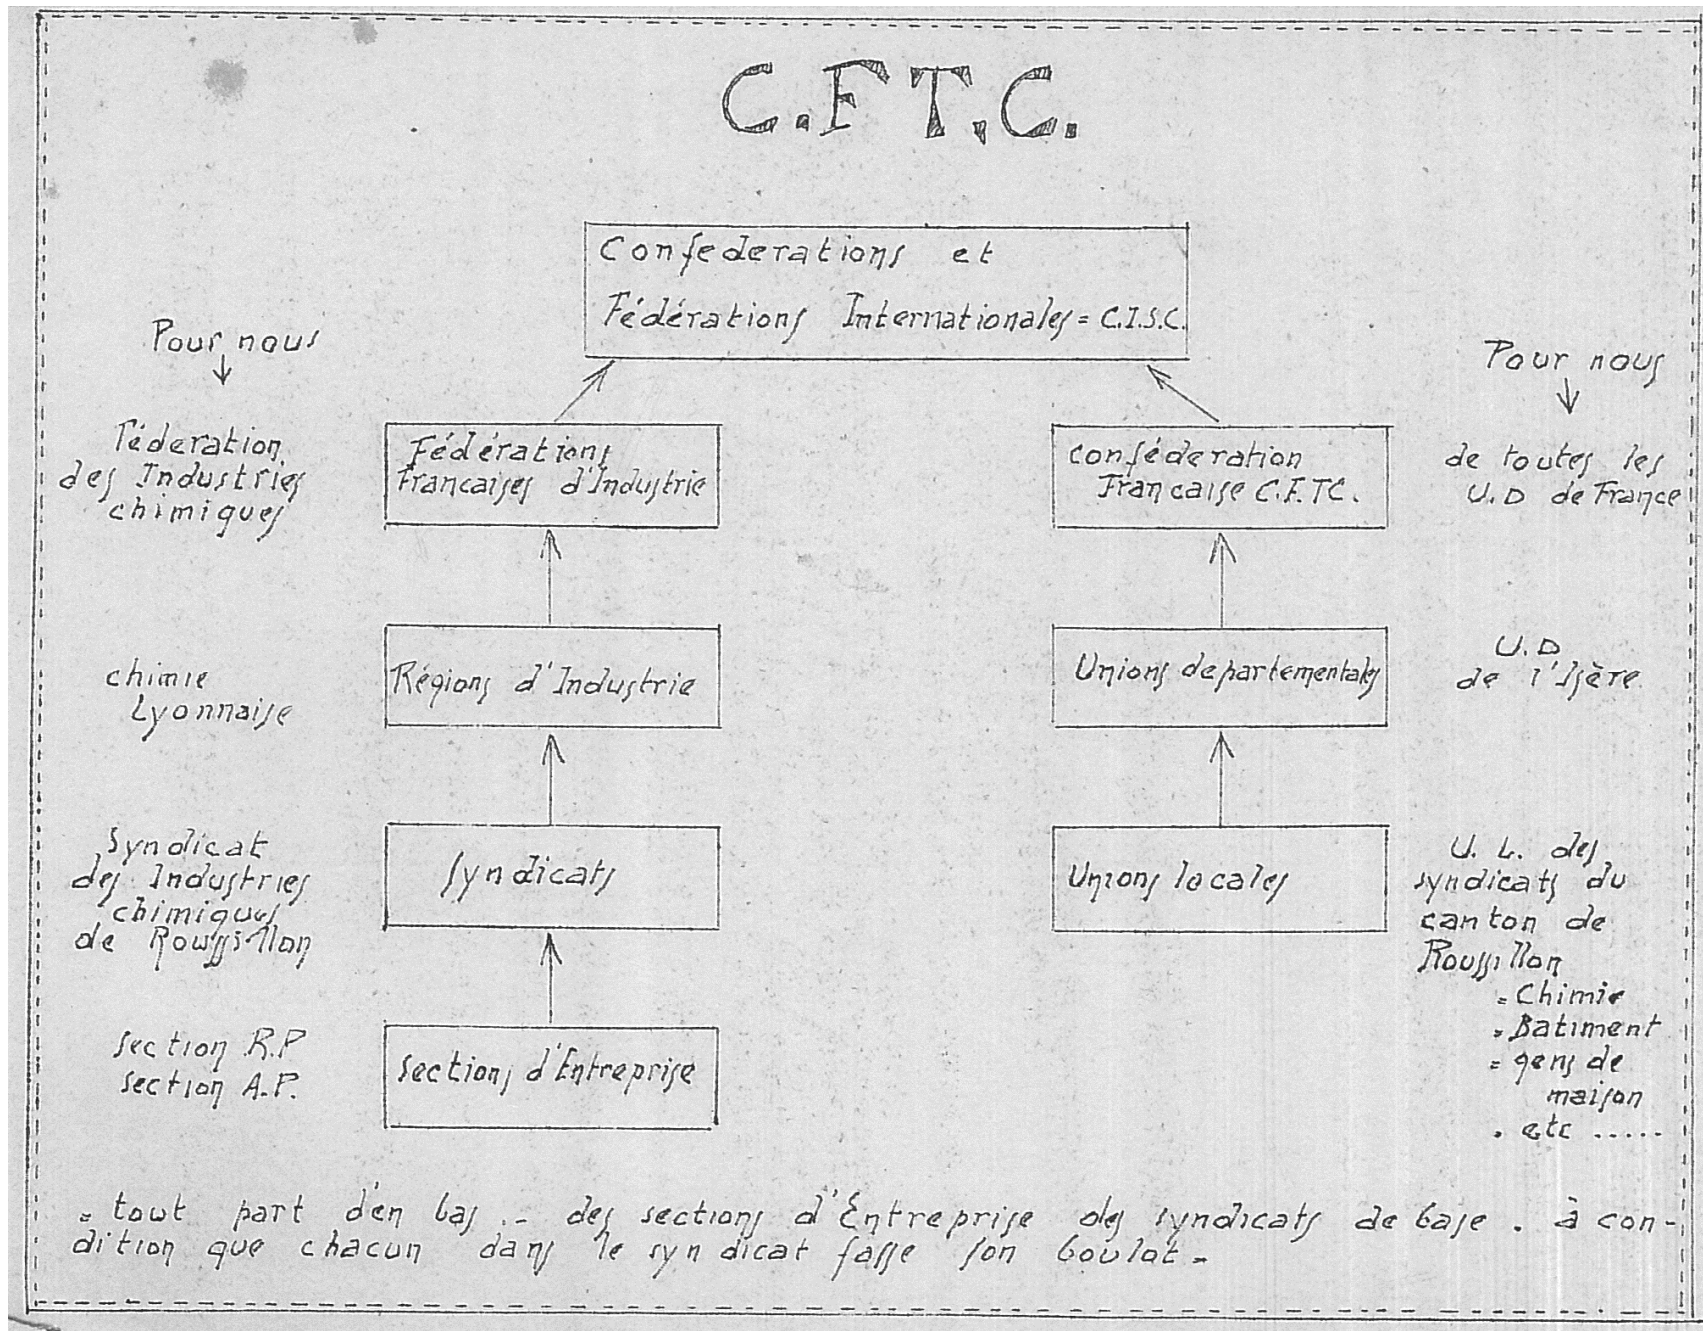 C.F.T.C.
Confederations et
Fédérations Internationales = C.I.S.C.
Pour nous
Féderation
des Industries
chimiques
Fédérations
Francaises d'Industrie
conféderation
Francaise C.F.TC.
Pour nous
de toutes les
U.D de France
chimie
Lyonnaise
Régions d'Industrie
Unions departementales
U.D
de l'Isère
Syndicat
des Industries
chimiques
de Roussillon
Syndicats
Unions locales
U. L. des
syndicats du
canton de
Roussillon
= Chimie
= Batiment
= gens de
maison
. etc .....
section R.P
section A.P.
sections d'Entreprise
= tout part d'en bas .. des sections d'Entreprise des syndicats de base . à con-
dition que chacun dans le syndicat fasse son boulot =